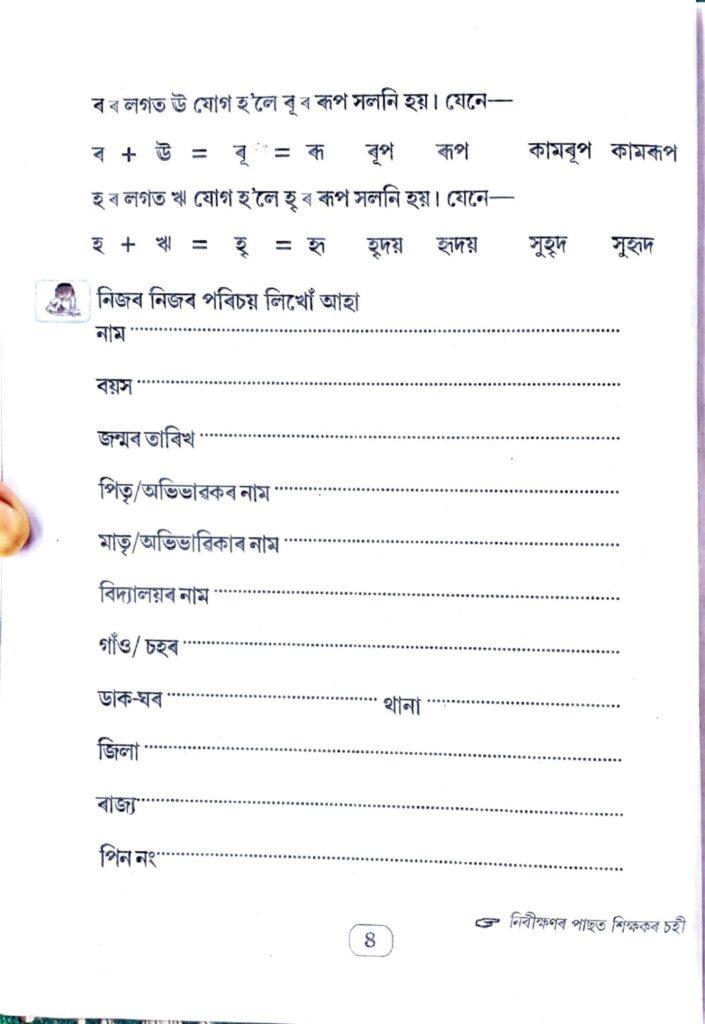 ৰ ৰ লগত ঊ যোগ হ'লে ৰূ ৰ ৰূপ সলনি হয়। যেনে—
ৰ + ঊ = ৰূ = ৰূ ৰূপ ৰূপ কামৰূপ কামৰূপ
হ ৰ লগত ঋ যোগ হ'লে হৃ ৰ ৰূপ সলনি হয়। যেনে—
হ + ঋ = হৃ = হৃ হৃদয় হৃদয় সুহৃদ সুহৃদ
নিজৰ নিজৰ পৰিচয় লিখোঁ আহা
নাম
বয়স
জন্মৰ তাৰিখ
পিতৃ/অভিভাৱকৰ নাম
মাতৃ/অভিভাৱিকাৰ নাম
বিদ্যালয়ৰ নাম
গাঁও/ চহৰ
ডাক-ঘৰ থানা
জিলা
ৰাজ্য
পিন নং
☞ নিৰীক্ষণৰ পাছত শিক্ষকৰ চহী
8